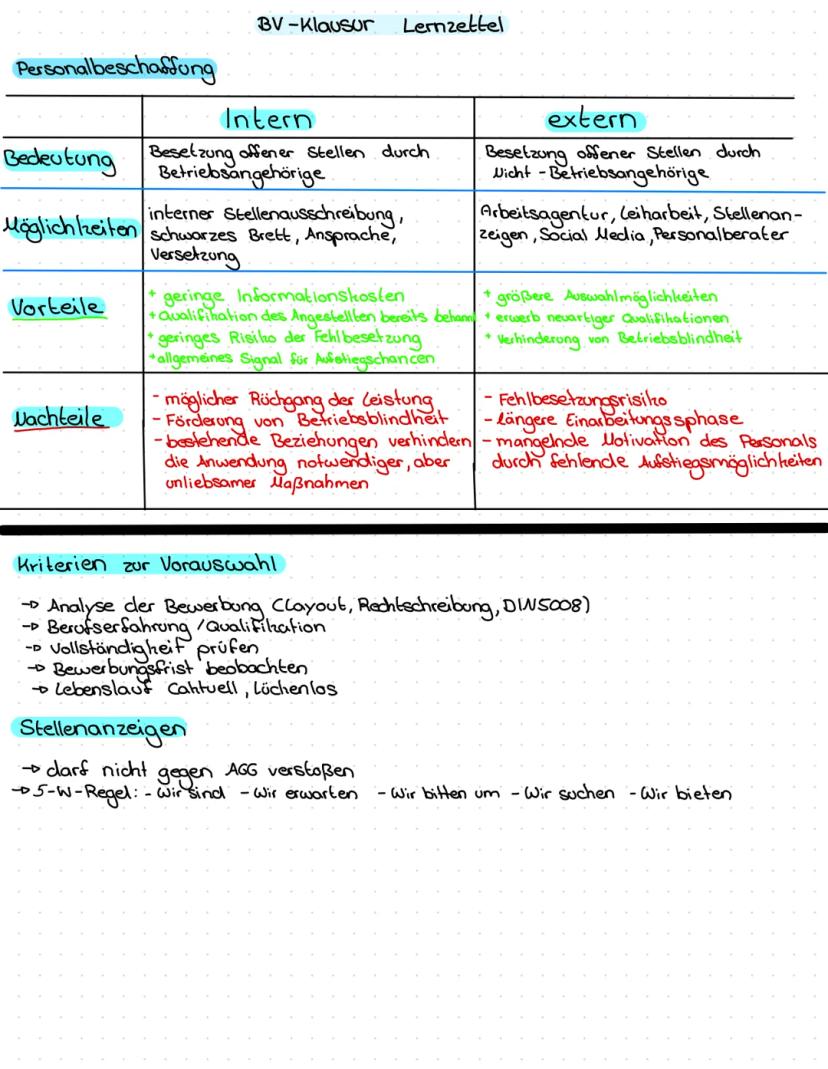 BV-Klausur Lernzettel
Personalbeschaffung
Intern
extern
Bedeutung
Besetzung offener Stellen durch
Betriebsangehörige
Besetzung offener Stellen durch
Nicht-Betriebsangehörige
Möglichkeiten
interner Stellenausschreibung,
schwarzes Brett, Ansprache,
Versetzung
Arbeitsagentur, Leiharbeit, Stellenan-
zeigen, Social Media, Personalberater
Vorteile
+ geringe Informationskosten
+ Qualifikation des Angestellten bereits bekannt
+ geringes Risiko der Fehlbesetzung
+ allgemeines Signal für Aufstiegschancen
+ größere Auswahlmöglichkeiten
+ erwerb neuartiger Qualifikationen
+ Verhinderung von Betriebsblindheit
Nachteile
- möglicher Rückgang der Leistung
- Förderung von Betriebsblindheit
- bestehende Beziehungen verhindern
die Anwendung notwendiger, aber
unliebsamer Maßnahmen
- Fehlbesetzungsrisiko
- längere Einarbeitungssphase
- mangelnde Motivation des Personals
durch fehlende Aufstiegsmöglichkeiten
Kriterien zur Vorauswahl
→ Analyse der Bewerbung (Layout, Rechtschreibung, DIN5008)
→ Berufserfahrung / Qualifikation
→ Vollständigkeit prüfen
→ Bewerbungsfrist beobachten
→ Lebenslauf (aktuell, Lückenlos
Stellenanzeigen
→ darf nicht gegen AGG verstoßen
→ 5-W-Regel: - Wir sind - Wir erwarten - Wir bitten um - Wir suchen - Wir bieten